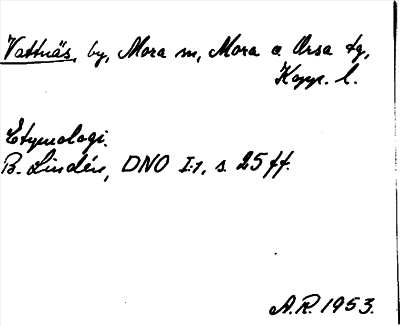 Vattnäs, by, Mora sn, Mora o Orsa tg,
Kopp. l.
Etymologi.
B. Lindén, DNO I:1, s. 25 ff.
A.R. 1953.